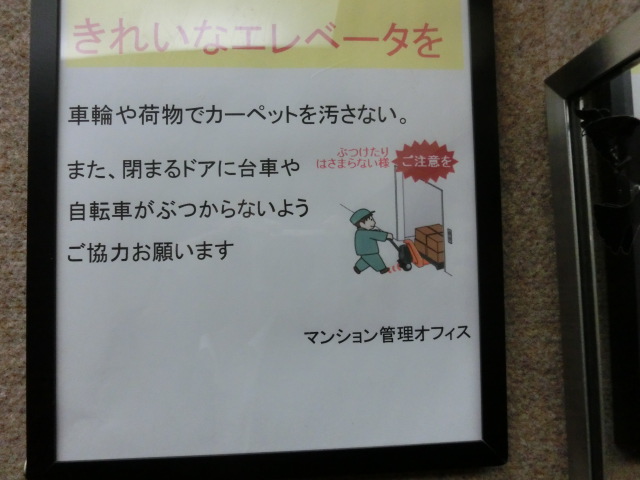 きれいなエレベータを
車輪や荷物でカーペットを汚さない。
また、閉まるドアに台車や
自転車がぶつからないよう
ご協力お願います
ぶつけたり
はさまらない様
ご注意を
マンション管理オフィス